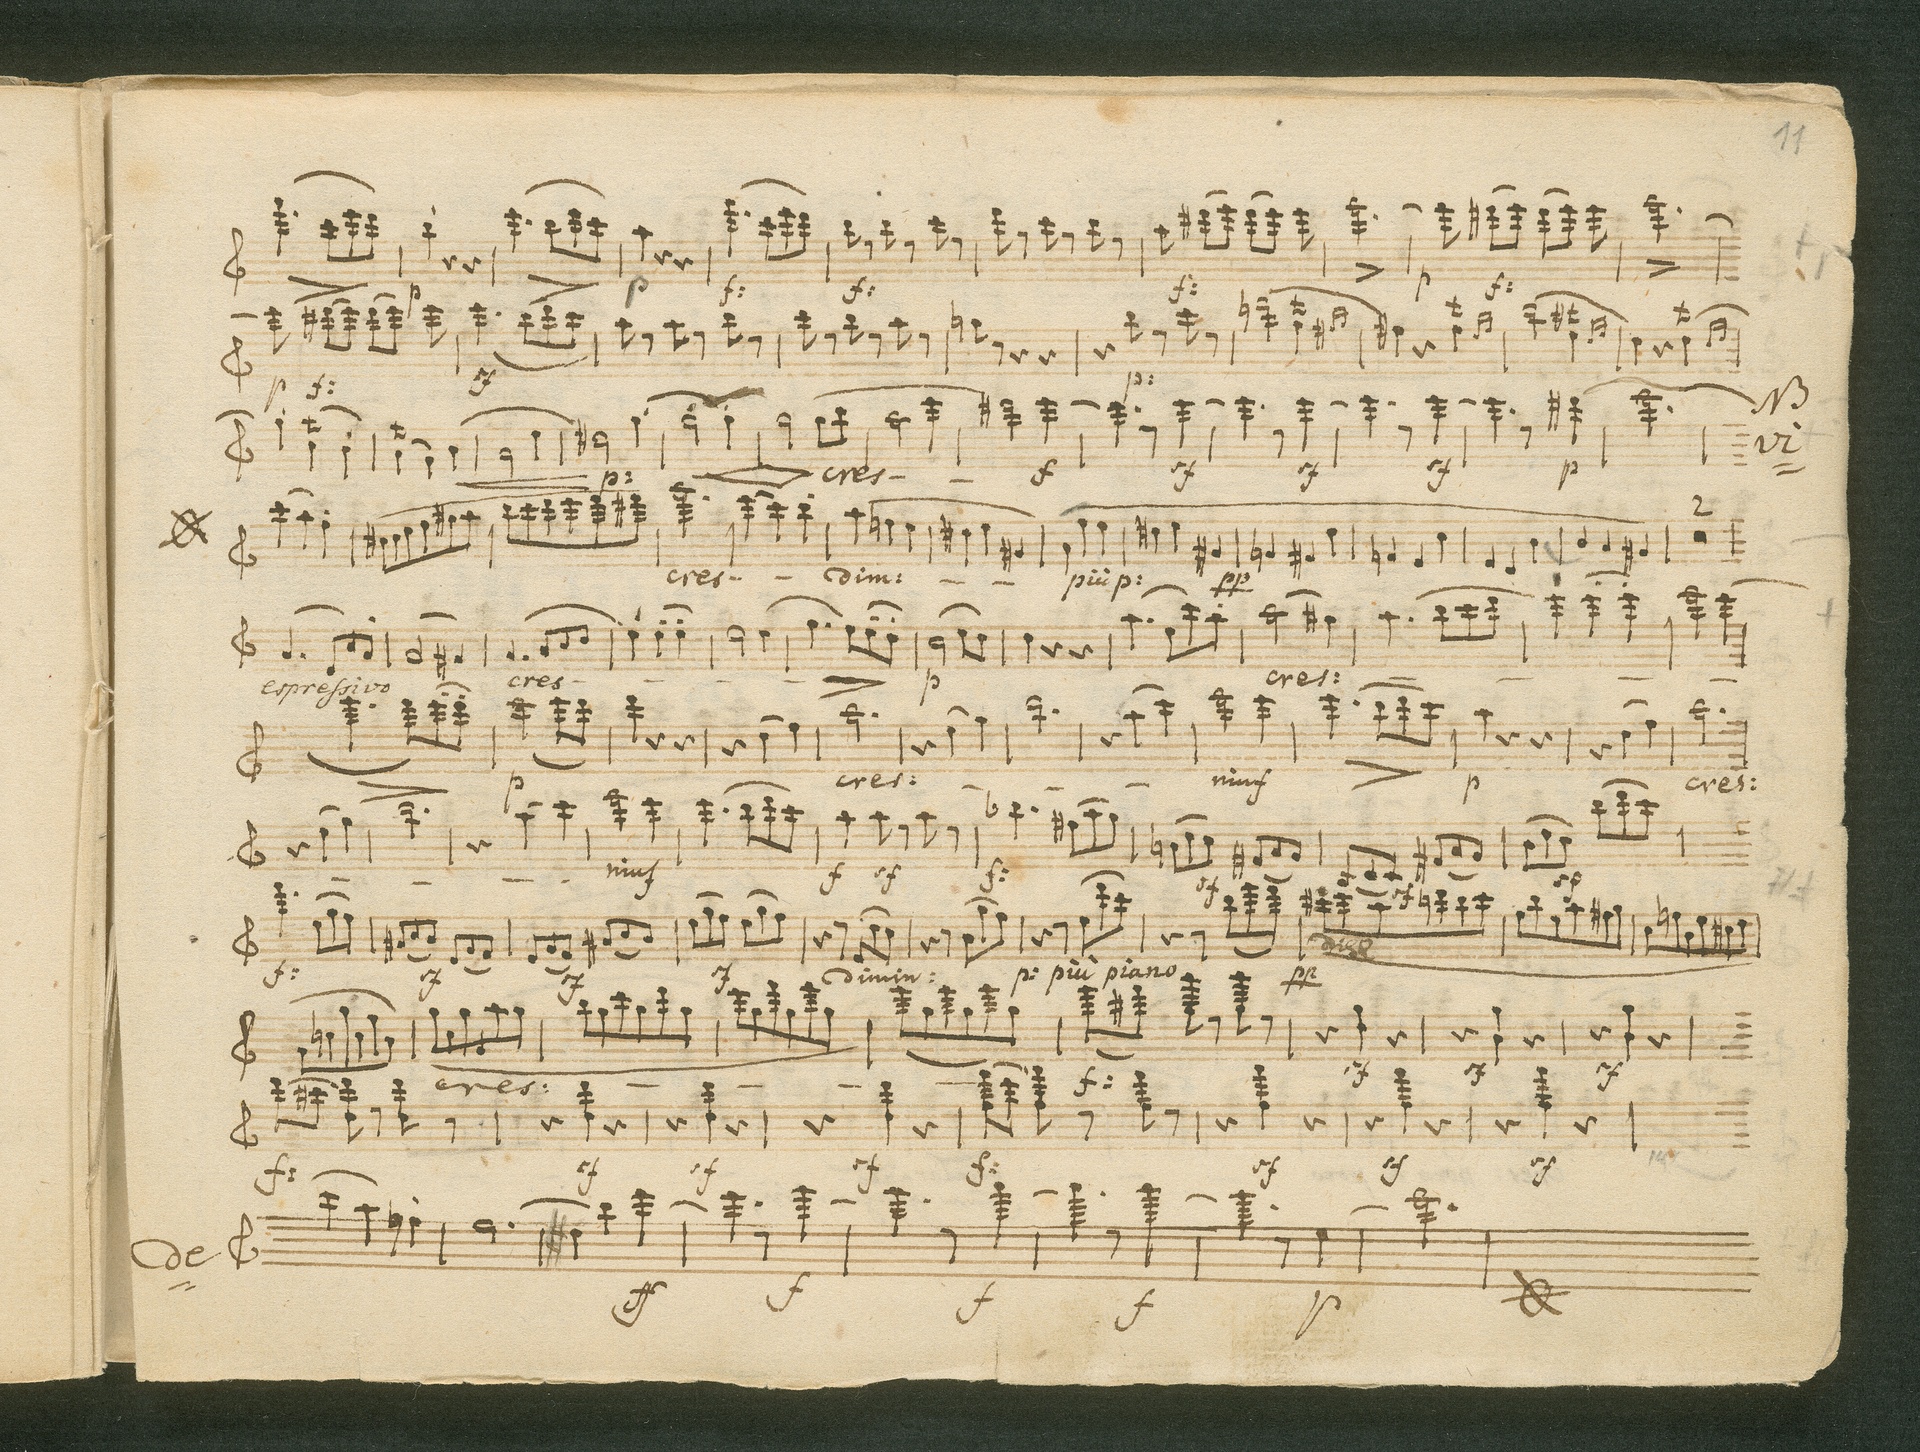 11
p p f: f: f: p f:
p f: sf p:
NB
p: cres- - f sf sf sf p vi
cres- - dim: - - più p: pp 2
espressivo cres - - - - p cres: - - - -
p cres: - - rinf p cres:
- - - - rinf f sf f: sf sf
f: sf sf sf Dimin: p: più piano pp
cres: - - - - f: sf sf sf
f: sf sf sf f: sf sf sf
de
ff f f f p